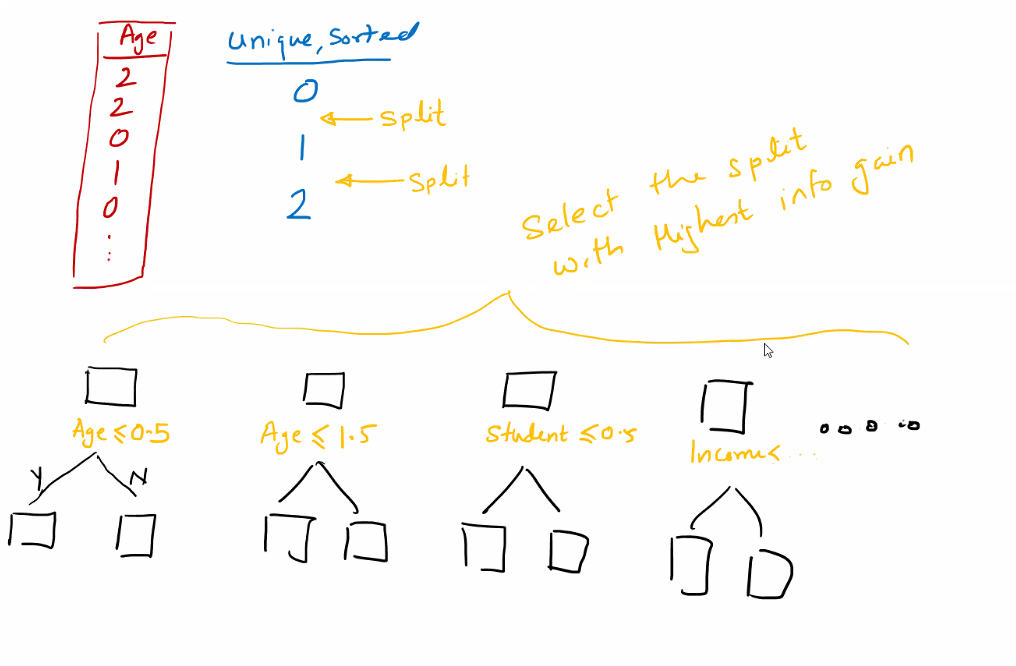 Age
2
2
0
1
0
:
unique, sorted
0
split
1
split
2
Select the split
with Highest info gain
Age ≤ 0.5
Y N
Age ≤ 1.5
Student ≤ 0.5
Income < ...